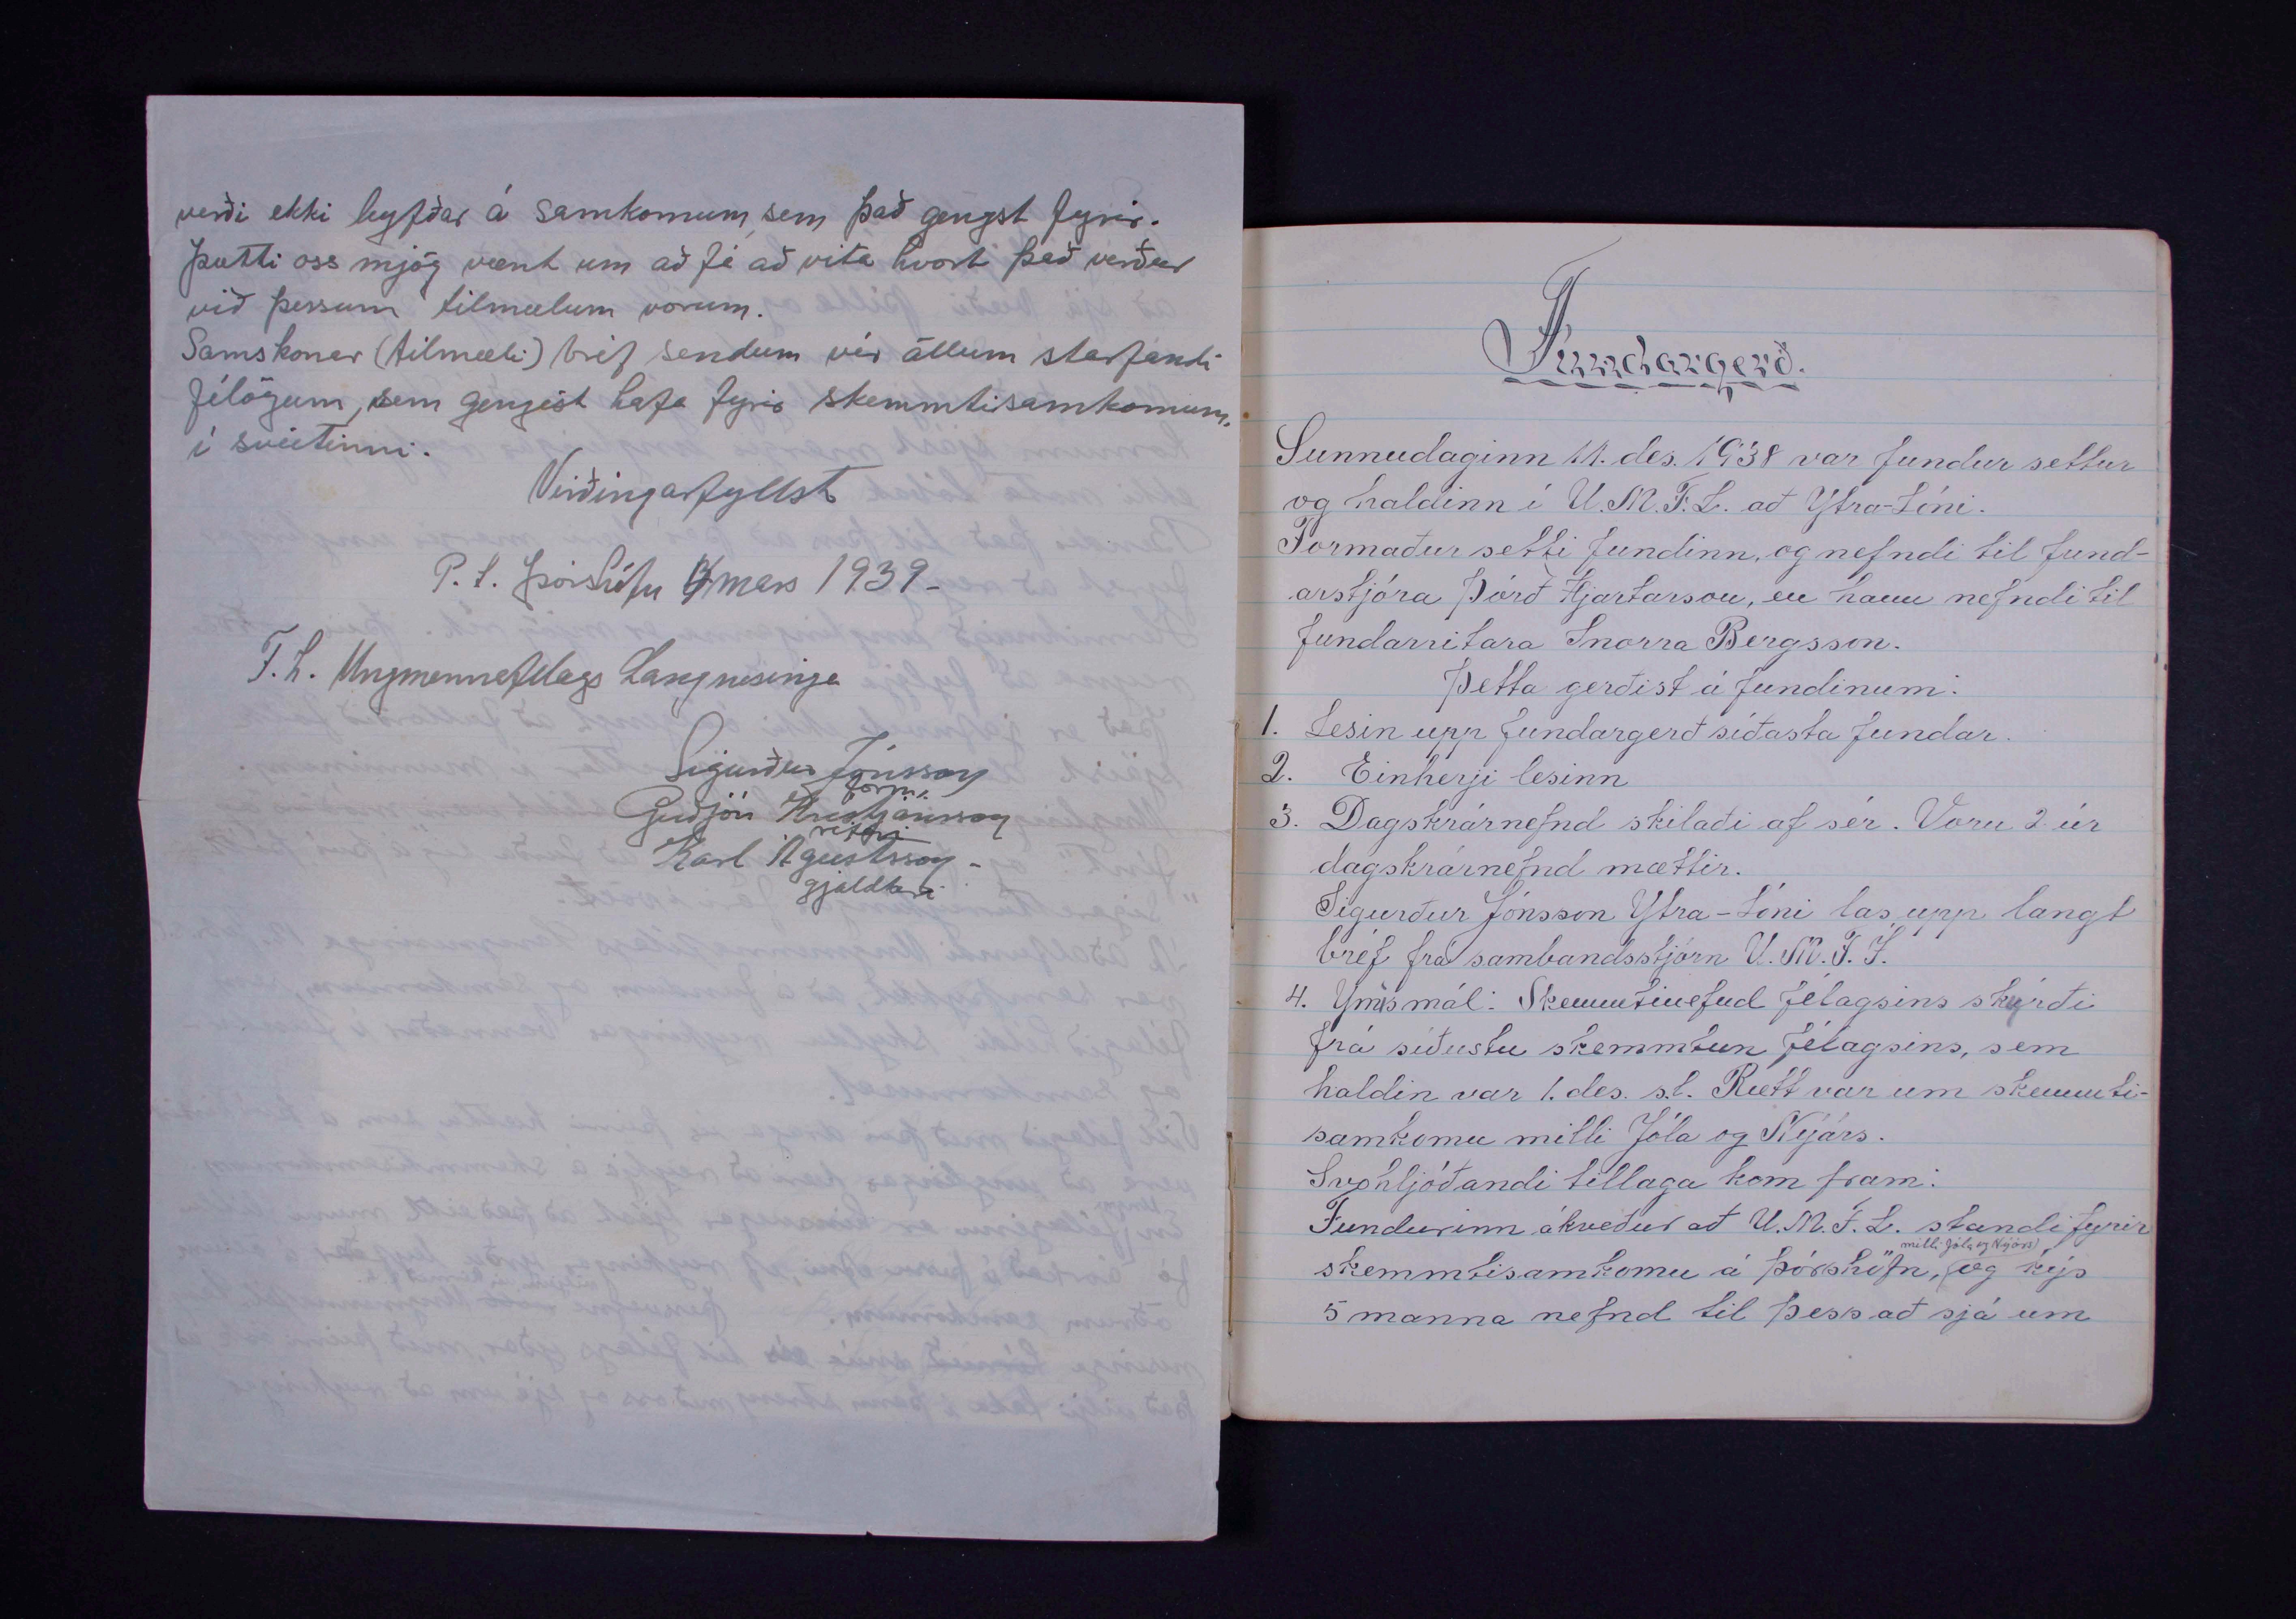 verði ekki leyfðar á samkomum, sem það gengst fyrir.
Þætti oss mjög vænt um að fá að vita hvort það verður
við þessum tilmælum vorum.
Samskonar (tilmæli) bréf sendum vér öllum starfandi
félögum, sem gengist hafa fyrir skemmtisamkomum,
í sveitinni.
Virðingarfyllst
P.t. Þórshöfn mars 1939-
F.h. Ungmennafélags Langnesinga
Sigurður Jónsson
form.
Guðjón Kristjánsson
ritari
Karl Ágústsson-
gjaldkeri
Fundargerð.
Sunnudaginn 11. des. 1938 var fundur settur
og haldinn í U.M.F.L. að Ytra-Lóni.
Formaður setti fundinn, og nefndi til fund-
arstjóra Þórð Hjartarson, en hann nefndi til
fundarritara Snorra Bergsson.
Þetta gerðist á fundinum:
1. Lesin upp fundargerð síðasta fundar.
2. Einherji lesinn
3. Dagskrárnefnd skilaði af sér. Voru 2 úr
dagskrárnefnd mættir.
Sigurður Jónsson Ytra-Lóni las upp langt
bréf frá sambandsstjórn U.M.F.Í.
4. Ýmis mál: Skemmtinefnd félagsins skýrði
frá síðustu skemmtun félagsins, sem
haldin var 1. des. s.l. Rætt var um skemmti-
samkomu milli Jóla og Nýjárs.
Svohljóðandi tillaga kom fram:
Fundurinn ákveður að U.M.F.L. standi fyrir
milli Jóla og Nýjárs
skemmtisamkomu á Þórshöfn, og kýs
5 manna nefnd til þess að sjá um